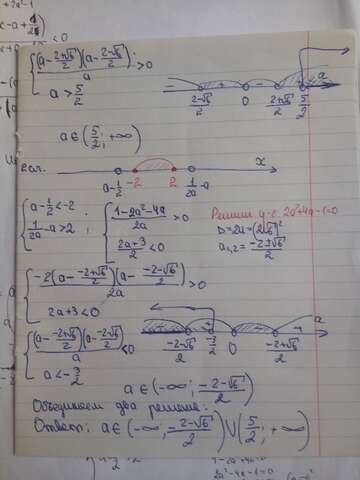 { (a - (2+√6)/2)(a - (2-√6)/2) / a > 0
a > 5/2
(2-√6)/2 0 (2+√6)/2 5/2 a
a ∈ (5/2; +∞)
2сл.
a-1/2 -2 2 1/2a - a x
{ a - 1/2 < -2
1/2a - a > 2 ;
{ (1-2a²-4a)/2a > 0
(2a+3)/2 < 0
Решим ур-е 2a²+4a-1=0
D=24=(2√6)²
a₁,₂ = (-2±√6)/2
{ -2(a - (-2+√6)/2)(a - (-2-√6)/2) / 2a > 0
2a+3 < 0
{ (a - (-2+√6)/2)(a - (-2-√6)/2) / a < 0
a < -3/2
(-2-√6)/2 -3/2 0 (-2+√6)/2 a
a ∈ (-∞; (-2-√6)/2)
Объединяем два решения:
Ответ: a ∈ (-∞; (-2-√6)/2) ∪ (5/2; +∞)